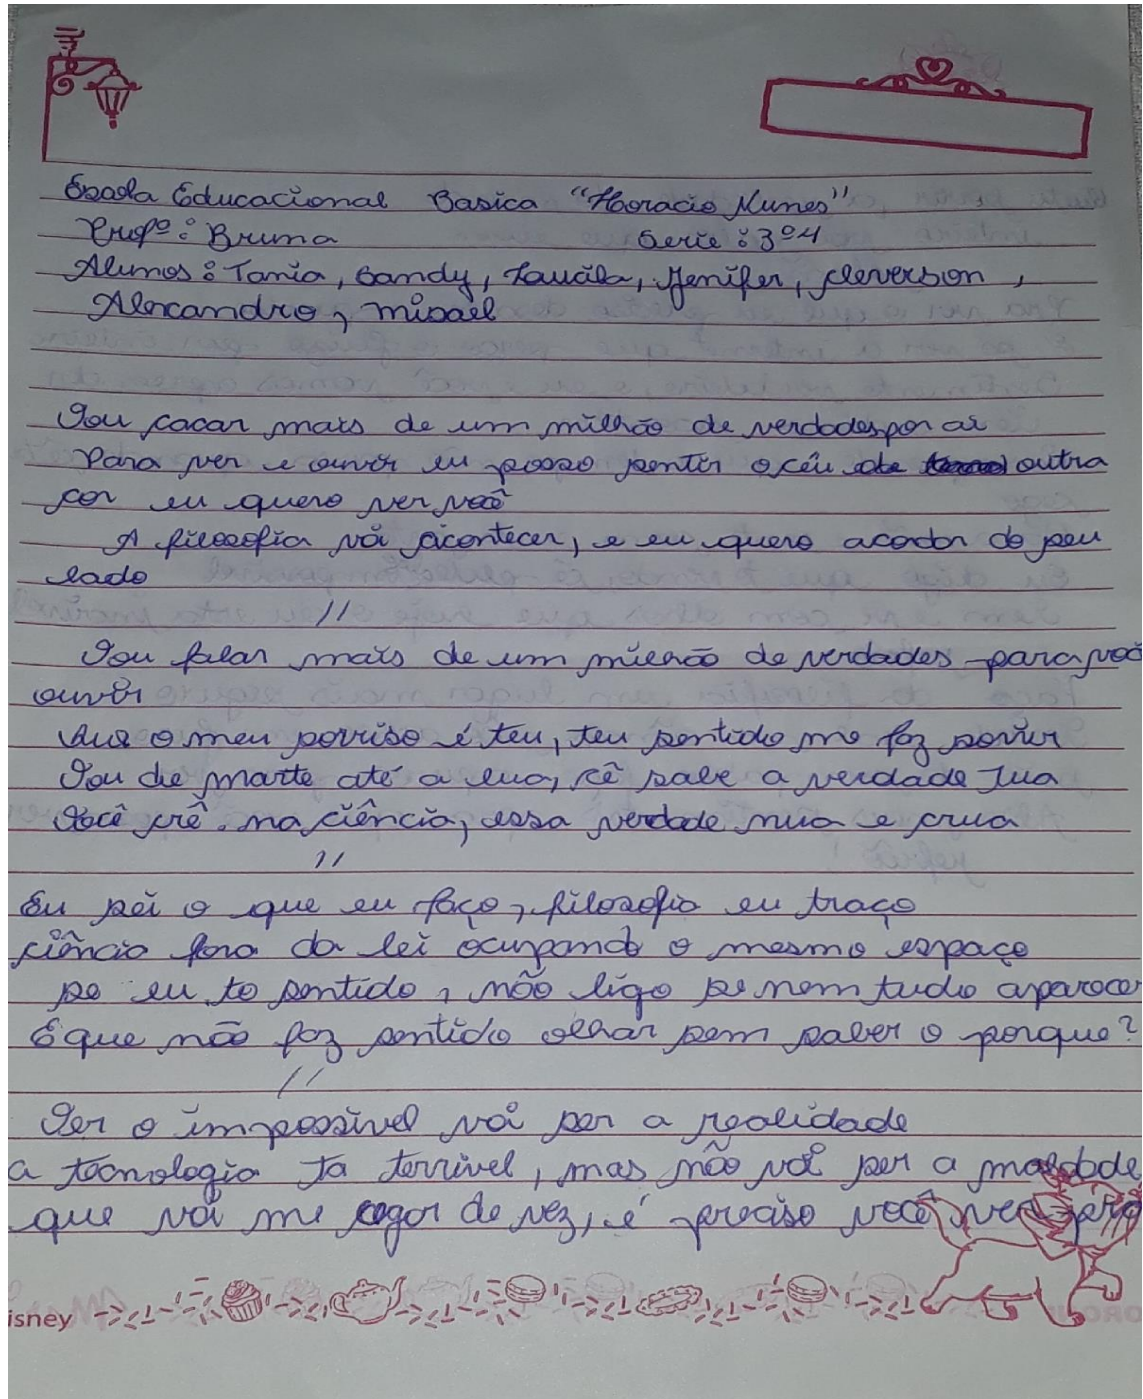 Escola Educacional Basica "Horacio Nunes"
Profº: Bruna Serie: 3º4
Alunos: Tania, Sandy, Jenifer, Cleverson,
Alexandro, Misael
Vou caçar mais de um milhão de verdades por ai
Para ver e ouvir eu posso sentir o céu de outra
cor eu quero ver você
A filosofia vai acontecer, e eu quero acordar do seu
lado
//
Vou falar mais de um milhão de verdades para você
ouvir
que o meu sorriso é teu, teu sentido me faz sorrir
Vou de marte até a lua, cê sabe a verdade tua
Você crê. na ciência, essa verdade nua e crua
//
Eu sei o que eu faço, filosofia eu traço
ciência fora da lei ocupando o mesmo espaço
se eu to sentido, não ligo se nem tudo aparecer
É que não faz sentido olhar sem saber o porque?
//
Ver o impossivel vai ser a realidade
a tecnologia ta terrivel, mas não vai ser a maldade
que vai me cegar de vez, é preciso você ver pra
isney